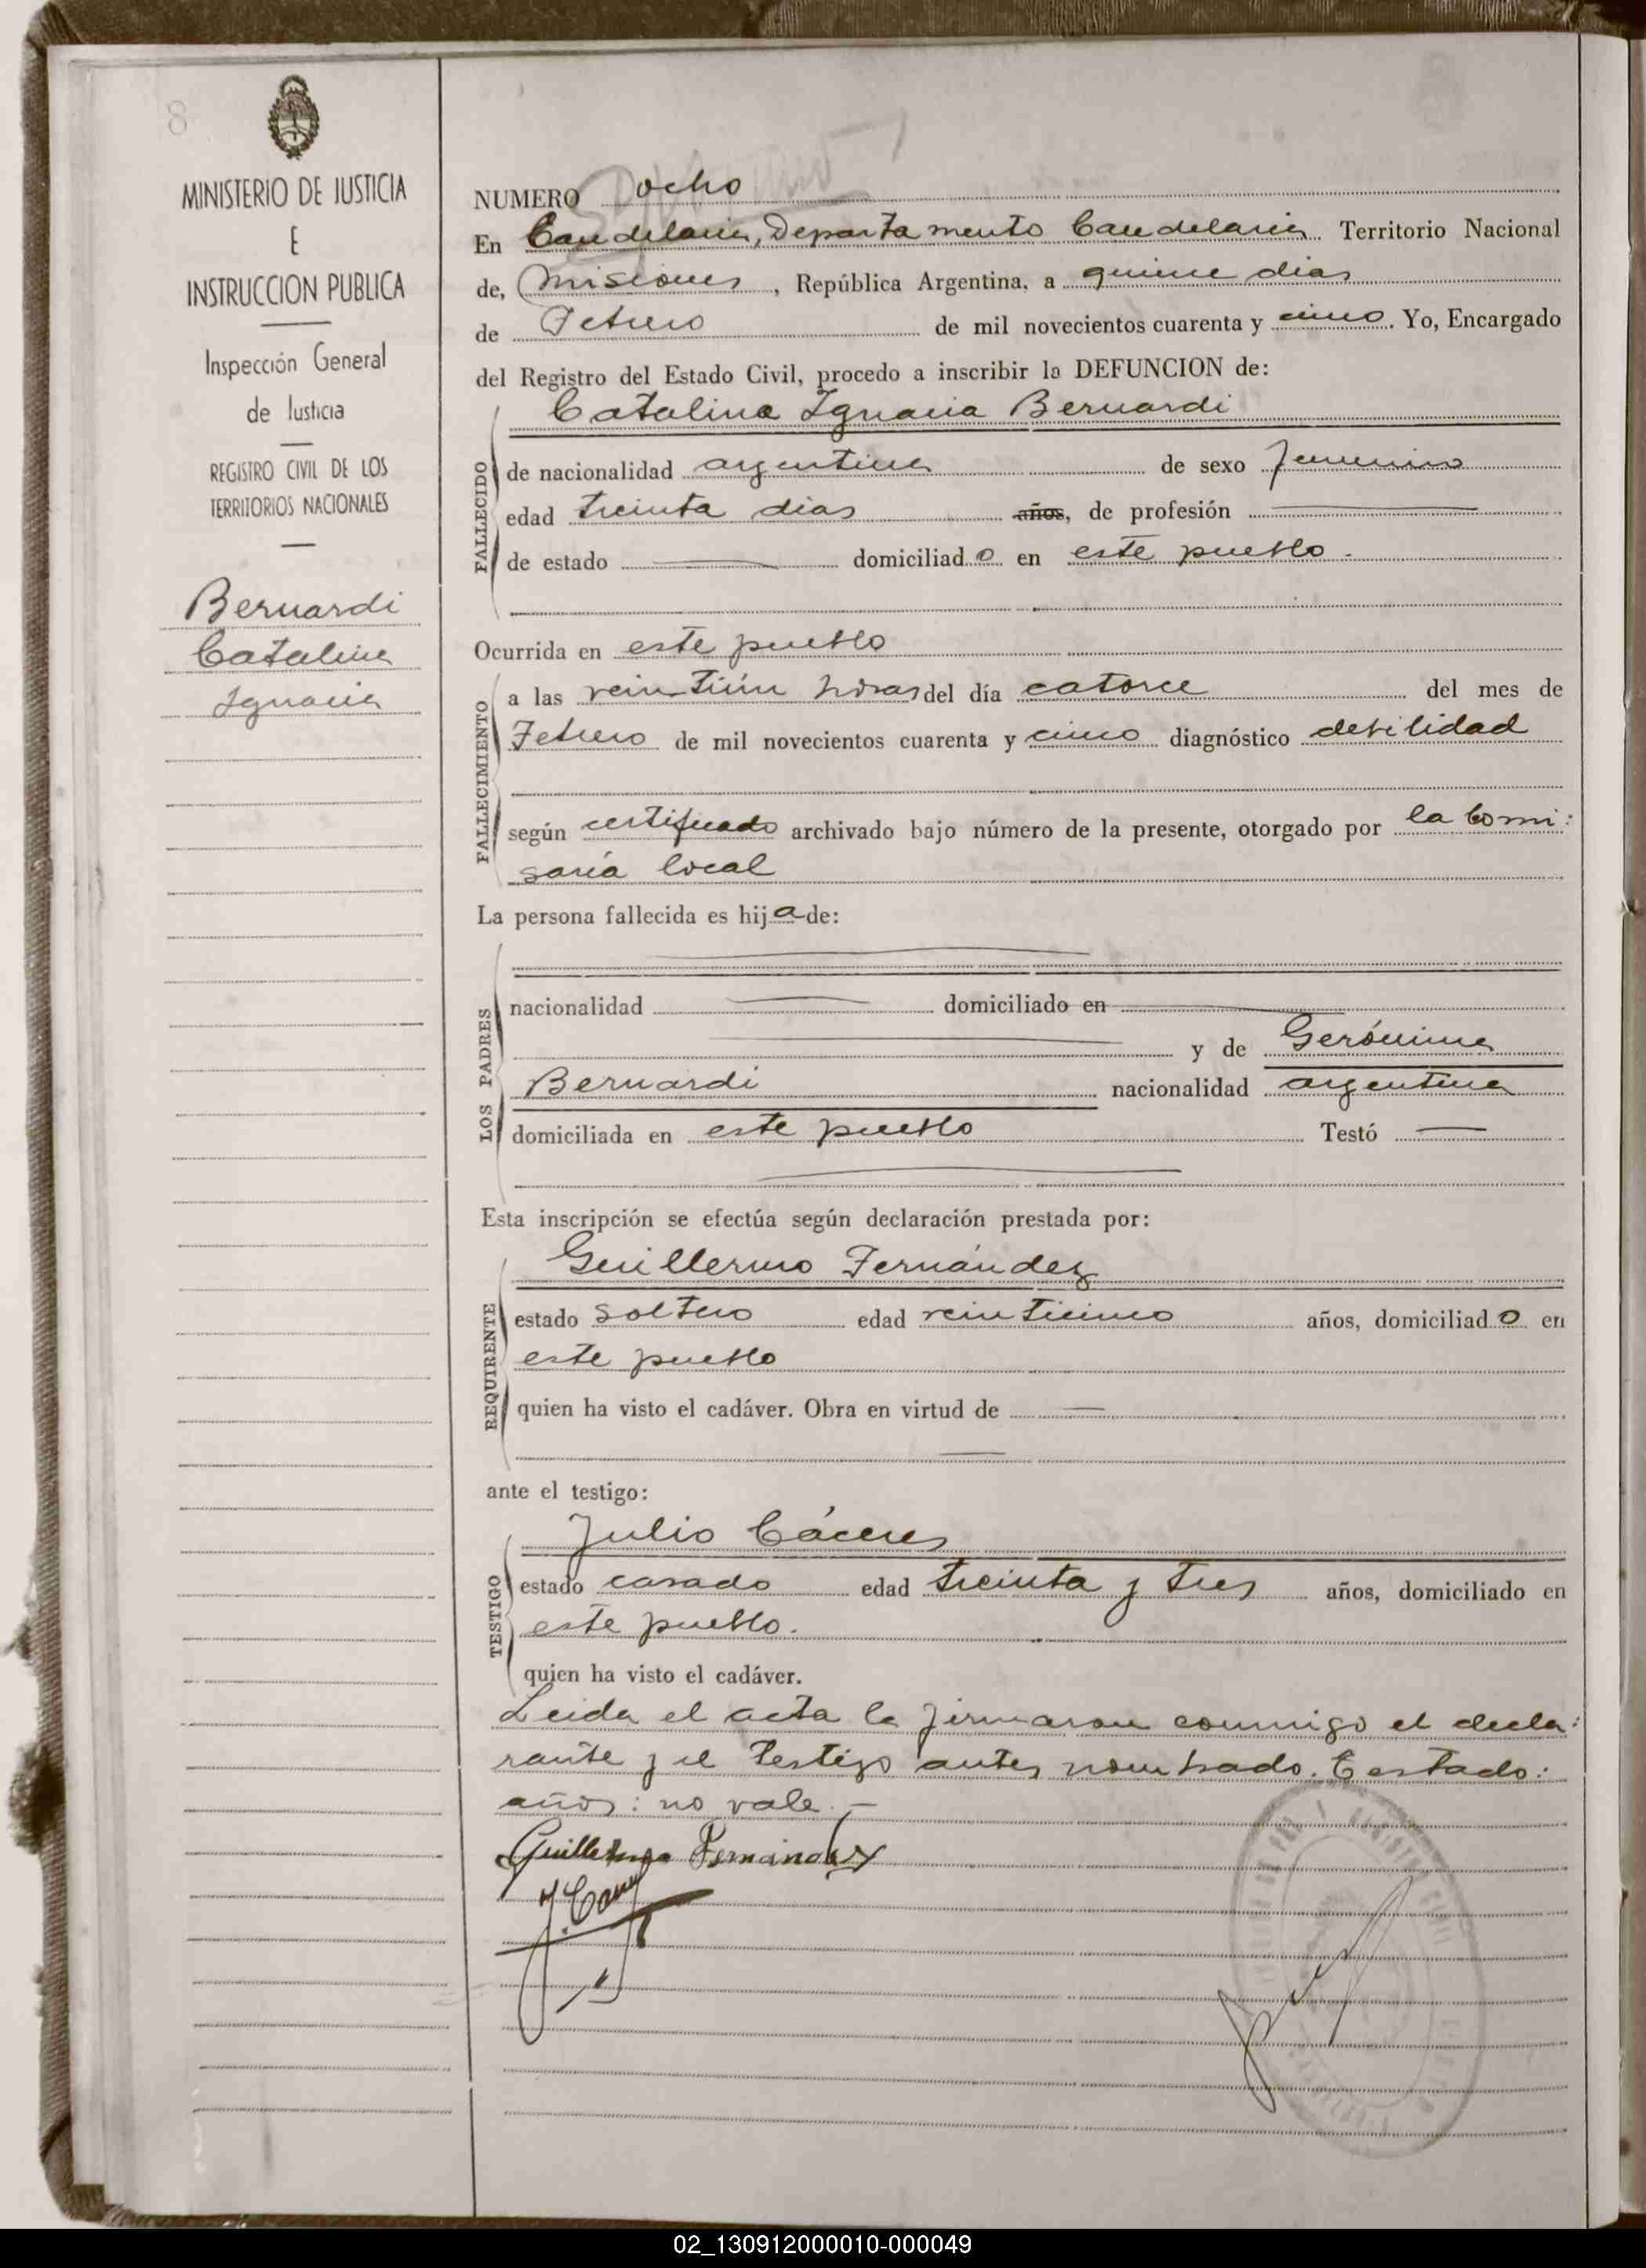 8
MINISTERIO DE JUSTICIA
E
INSTRUCCION PUBLICA
Inspección General
de Justicia
REGISTRO CIVIL DE LOS
TERRITORIOS NACIONALES
Bernardi
Catalina
Ignacia
NUMERO ocho
En Candelaria, Departamento Candelaria Territorio Nacional
de, Misiones, República Argentina, a quince dias
de Febrero de mil novecientos cuarenta y cinco. Yo, Encargado
del Registro del Estado Civil, procedo a inscribir la DEFUNCION de:
Catalina Ignacia Bernardi
FALLECIDO
de nacionalidad argentina de sexo femenino
edad treinta dias años, de profesión —
de estado — domiciliado en este pueblo.
Ocurrida en este pueblo
FALLECIMIENTO
a las veintiún horas del día catorce del mes de
Febrero de mil novecientos cuarenta y cinco diagnóstico debilidad
según certificado archivado bajo número de la presente, otorgado por la comi:
saría local
La persona fallecida es hija de:
—
LOS PADRES
nacionalidad — domiciliado en —
— y de Gerónima
Bernardi nacionalidad argentina
domiciliada en este pueblo Testó —
—
Esta inscripción se efectúa según declaración prestada por:
Guillermo Fernández
REQUIRENTE
estado soltero edad veinticinco años, domiciliado en
este pueblo
quien ha visto el cadáver. Obra en virtud de —
—
ante el testigo:
Julio Cáceres
TESTIGO
estado casado edad treinta y tres años, domiciliado en
este pueblo.
quien ha visto el cadáver.
Leida el acta la firmaron conmigo el decla:
rante y el testigo antes nombrado. Testado:
años: no vale.—
Guillermo Fernandez
02_130912000010-000049